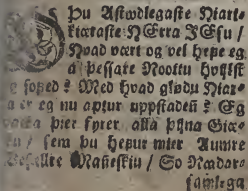 Þu Astwdlegaste Hiart-
kiæraste HErra JEsu /
Hvad vært og vel hefe eg
a þessare Noottu hvijlst
og sofed? Med hvad glødu Hiar-
ta er eg nu aptur uppstaden? Eg
þacka þier fyrer alla þijna Giæ-
sku / sem þu hefur mier Aumre
Maneskiu / So Naadar-
samlega